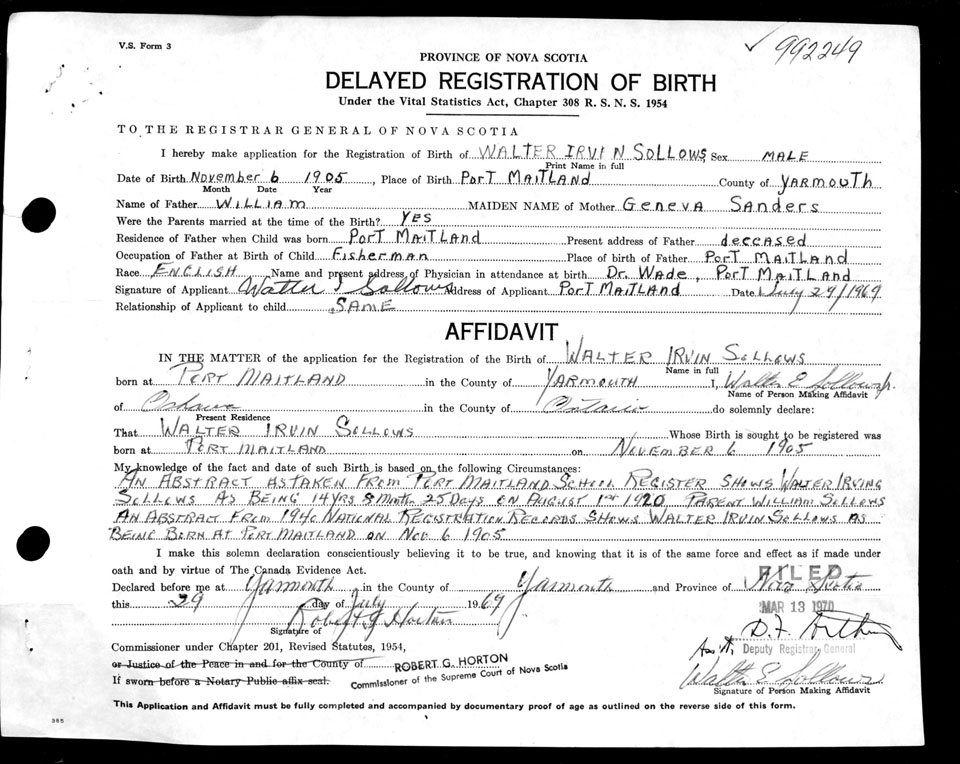 V.S. Form 3
✓ 992249
PROVINCE OF NOVA SCOTIA
DELAYED REGISTRATION OF BIRTH
Under the Vital Statistics Act, Chapter 308 R. S. N. S. 1954
TO THE REGISTRAR GENERAL OF NOVA SCOTIA
I hereby make application for the Registration of Birth of WALTER IRVIN SOLLOWS Sex MALE
Print Name in full
Date of Birth November 6 1905, Place of Birth PORT MAITLAND County of YARMOUTH
Month Date Year
Name of Father WILLIAM MAIDEN NAME of Mother Geneva Sanders
Were the Parents married at the time of the Birth? YES
Residence of Father when Child was born PORT MAITLAND Present address of Father deceased
Occupation of Father at Birth of Child Fisherman Place of birth of Father PORT MAITLAND
Race ENGLISH Name and present address of Physician in attendance at birth Dr. Wade, PORT MAITLAND
Signature of Applicant Walter I Sollows Address of Applicant PORT MAITLAND Date July 29/1969
Relationship of Applicant to child SAME
AFFIDAVIT
IN THE MATTER of the application for the Registration of the Birth of WALTER IRVIN SOLLOWS
Name in full
born at PORT MAITLAND in the County of YARMOUTH I, Walter E Sollows jr.
Name of Person Making Affidavit
of Oshawa in the County of Ontario do solemnly declare:
Present Residence
That WALTER IRVIN SOLLOWS Whose Birth is sought to be registered was
born at PORT MAITLAND on NOVEMBER 6 1905
My knowledge of the fact and date of such Birth is based on the following Circumstances:
AN ABSTRACT AS TAKEN FROM PORT MAITLAND SCHOOL REGISTER SHOWS WALTER IRVING
SOLLOWS AS BEING 14 YRS 8 Month 25 DAYS ON AUGUST 1st 1920 PARENT WILLIAM SOLLOWS
AN ABSTRACT FROM 1940 NATIONAL REGISTRATION RECORDS SHOWS WALTER IRVIN SOLLOWS AS
BEING BORN AT PORT MAITLAND ON NOV 6 1905
I make this solemn declaration conscientiously believing it to be true, and knowing that it is of the same force and effect as if made under
oath and by virtue of The Canada Evidence Act.
FILED
Declared before me at Yarmouth in the County of Yarmouth and Province of Nova Scotia
this 29 day of July 1969
MAR 13 1970
Robert G Horton
Signature of
Asst. Deputy Registrar General
Commissioner under Chapter 201, Revised Statutes, 1954,
or Justice of the Peace in and for the County of ROBERT G. HORTON
Commissioner of the Supreme Court of Nova Scotia
If sworn before a Notary Public affix seal.
Walter E Sollows
Signature of Person Making Affidavit
This Application and Affidavit must be fully completed and accompanied by documentary proof of age as outlined on the reverse side of this form.
365